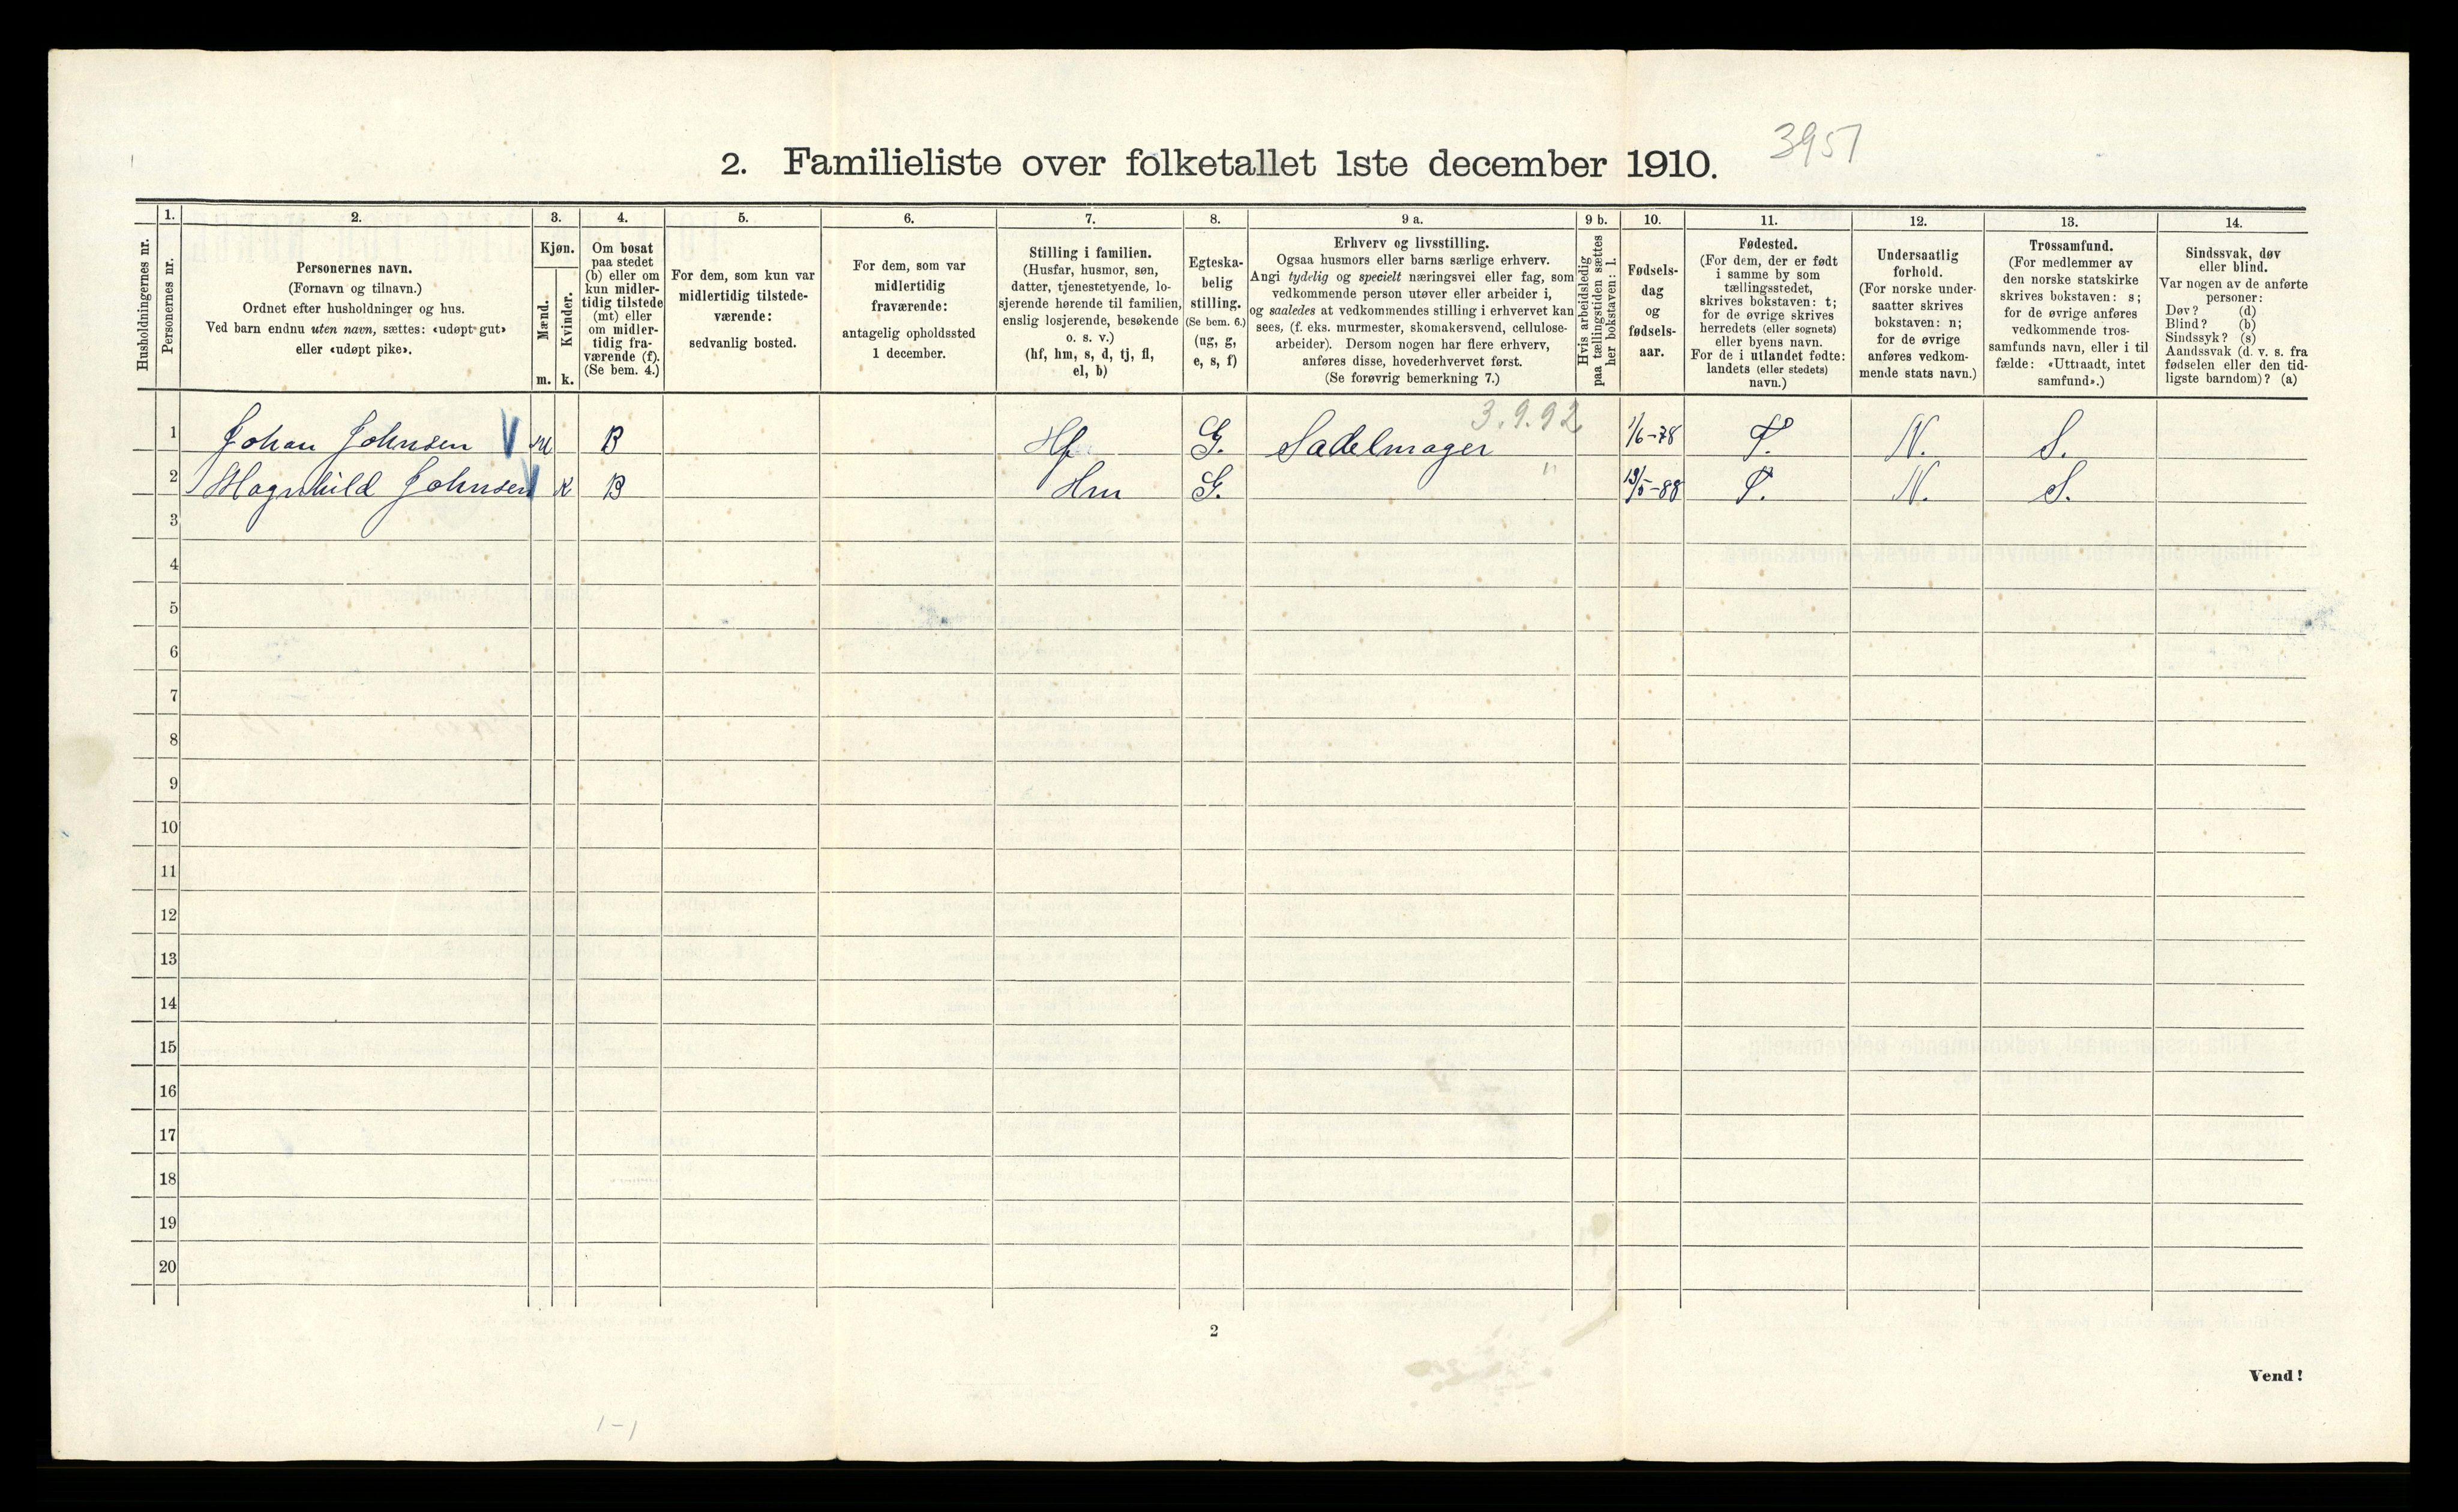 3957
2. Familieliste over folketallet 1ste december 1910.
Husholdningernes nr.
1.
Personernes nr.
2.
Personernes navn.
(Fornavn og tilnavn.)
Ordnet efter husholdninger og hus.
Ved barn endnu uten navn, sættes: «udøpt gut»
eller «udøpt pike».
3.
Kjøn.
Mænd.
m.
Kvinder.
k.
4.
Om bosat
paa stedet
(b) eller om
kun midler-
tidig tilstede
(mt) eller
om midler-
tidig fra-
værende (f).
(Se bem. 4.)
5.
For dem, som kun var
midlertidig tilstede-
værende:
sedvanlig bosted.
6.
For dem, som var
midlertidig
fraværende:
antagelig opholdssted
1 december.
7.
Stilling i familien.
(Husfar, husmor, søn,
datter, tjenestetyende, lo-
sjerende hørende til familien,
enslig losjerende, besøkende
o. s. v.)
(hf, hm, s, d, tj, fl,
el, b)
8.
Egteska-
belig
stilling.
(Se bem. 6.)
(ug, g,
e, s, f)
9 a.
Erhverv og livsstilling.
Ogsaa husmors eller barns særlige erhverv.
Angi tydelig og specielt næringsvei eller fag, som
vedkommende person utøver eller arbeider i,
og saaledes at vedkommendes stilling i erhvervet kan
sees, (f. eks. murmester, skomakersvend, cellulose-
arbeider). Dersom nogen har flere erhverv,
anføres disse, hovederhvervet først.
(Se forøvrig bemerkning 7.)
9 b.
Hvis arbeidsledig
paa tællingstiden sættes
her bokstaven: l.
10.
Fødsels-
dag
og
fødsels-
aar.
11.
Fødested.
(For dem, der er født
i samme by som
tællingsstedet,
skrives bokstaven: t;
for de øvrige skrives
herredets (eller sognets)
eller byens navn.
For de i utlandet fødte:
landets (eller stedets)
navn.)
12.
Undersaatlig
forhold.
(For norske under-
saatter skrives
bokstaven: n;
for de øvrige
anføres vedkom-
mende stats navn.)
13.
Trossamfund.
(For medlemmer av
den norske statskirke
skrives bokstaven: s;
for de øvrige anføres
vedkommende tros-
samfunds navn, eller i til
fælde: «Uttraadt, intet
samfund».)
14.
Sindssvak, døv
eller blind.
Var nogen av de anførte
personer:
Døv? (d)
Blind? (b)
Sindssyk? (s)
Aandssvak (d. v. s. fra
fødselen eller den tid-
ligste barndom)? (a)
3.9.92
1 Johan Johnsen V M B Hf G. Sadelmager 1/6-78 T. N. S.
2 Magnhild Johnsen V K B Hm G. " 13/5-88 T. N. S.
3
4
5
6
7
8
9
10
11
12
13
14
15
16
17
18
19
20
2
Vend!
1-1